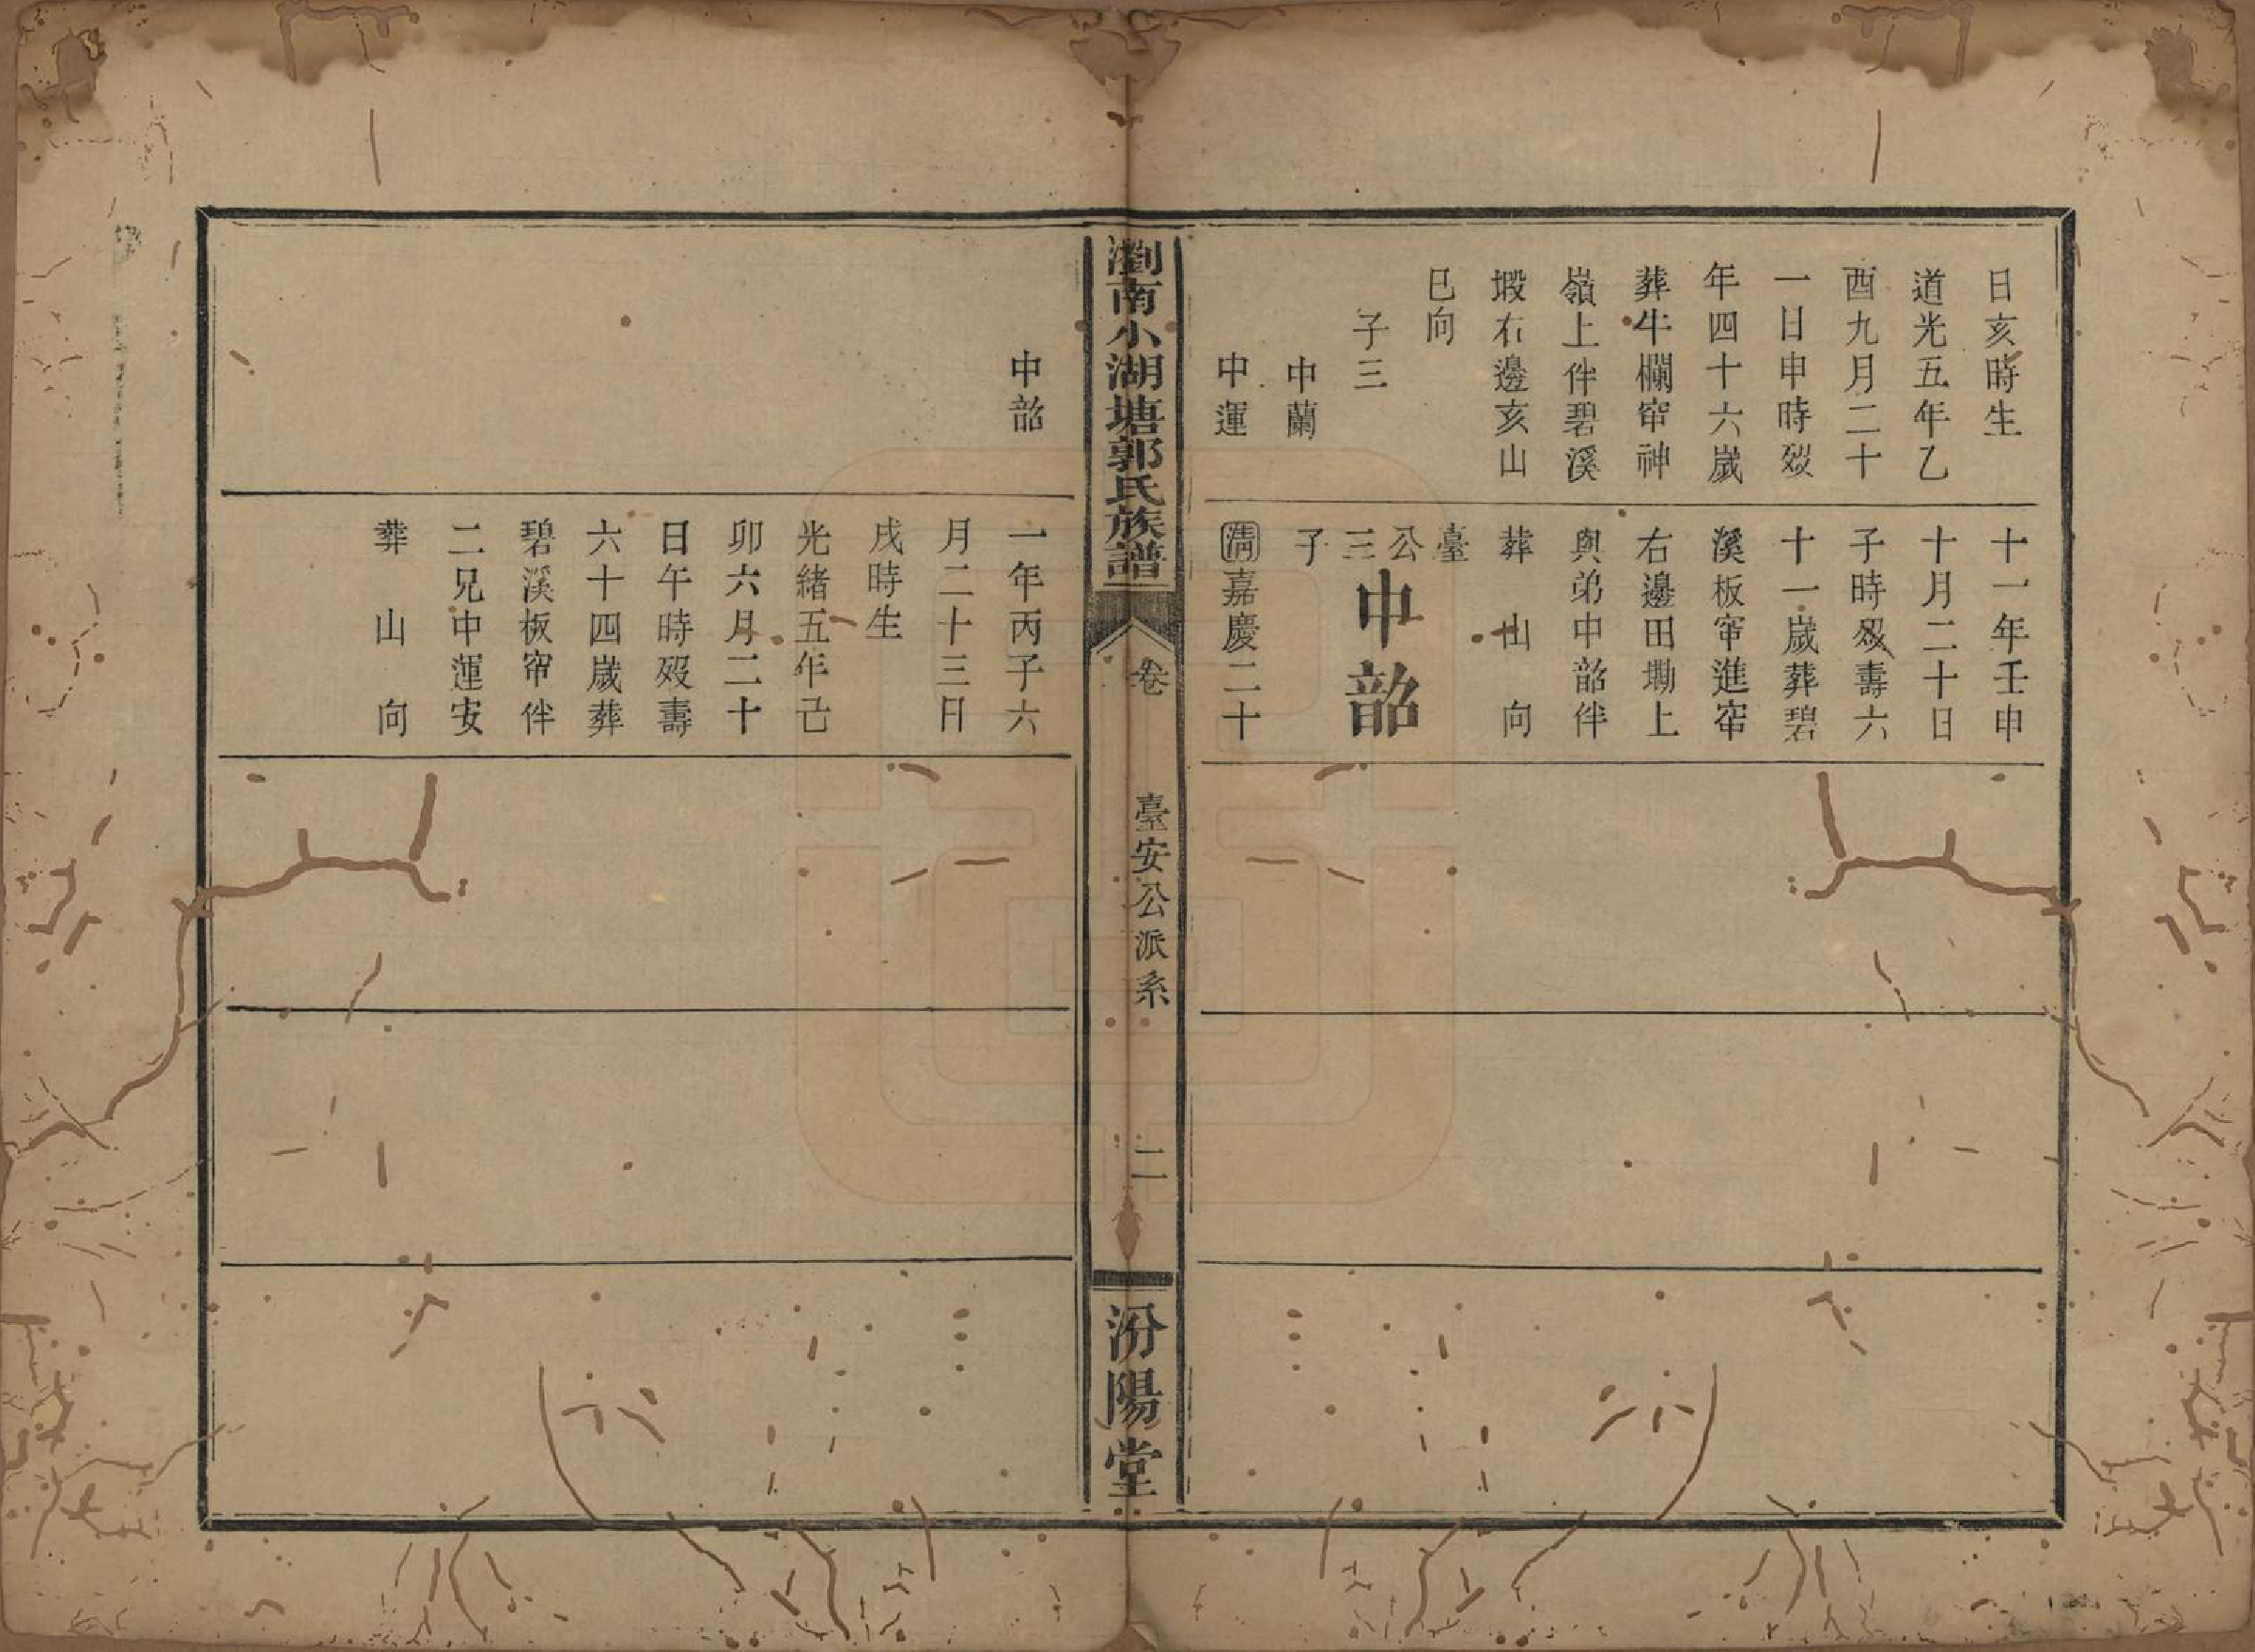 日亥時生
道光五年乙
酉九月二十
一日申時歿
年四十六歲
葬牛欄窂神
嶺上伴碧溪
塅右邊亥山
巳向
子三
中蘭
中運
十一年壬申
十月二十日
子時歿壽六
十一歲葬碧
溪板窂進窂
右邊田墈上
與弟中韶伴
葬山向
臺公三子
中韶
清嘉慶二十
瀏南小湖塘郭氏族譜
卷
臺安公派系
二
汾陽堂
中韶
一年丙子六
月二十三日
戌時生
光緒五年己
卯六月二十
日午時歿壽
六十四歲葬
碧溪板窂伴
二兄中運安
葬山向